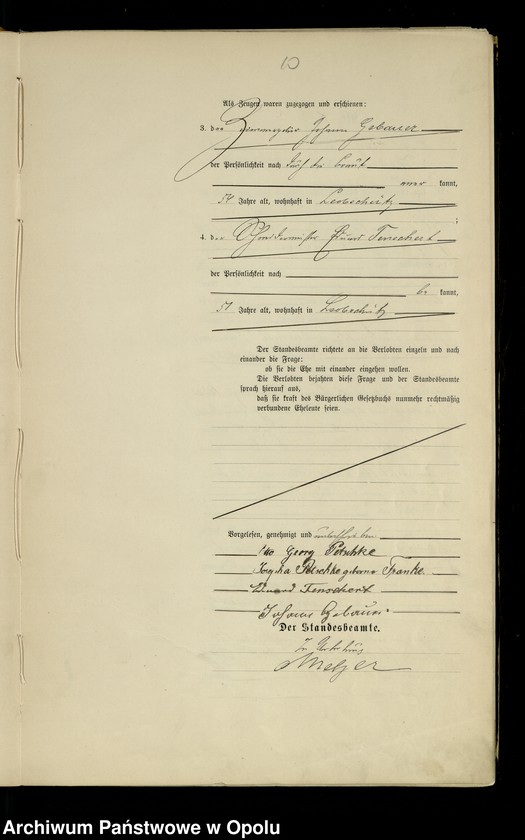 10
Als Zeugen waren zugezogen und erschienen:
3. der Johann Gebauer
der Persönlichkeit nach durch die Braut
aner kannt,
54 Jahre alt, wohnhaft in Leobschütz
;
4. der Eduard Tenschert
der Persönlichkeit nach
be kannt,
51 Jahre alt, wohnhaft in Leobschütz
Der Standesbeamte richtete an die Verlobten einzeln und nach
einander die Frage:
ob sie die Ehe mit einander eingehen wollen.
Die Verlobten bejahten diese Frage und der Standesbeamte
sprach hierauf aus,
daß sie kraft des Bürgerlichen Gesetzbuchs nunmehr rechtmäßig
verbundene Eheleute seien.
Vorgelesen, genehmigt und unterschrieben
Georg Petschke
Petschke geborene Franke
Eduard Tenschert
Johann Gebauer
Der Standesbeamte.
In Vertretung
Melzer
Archiwum Państwowe w Opolu